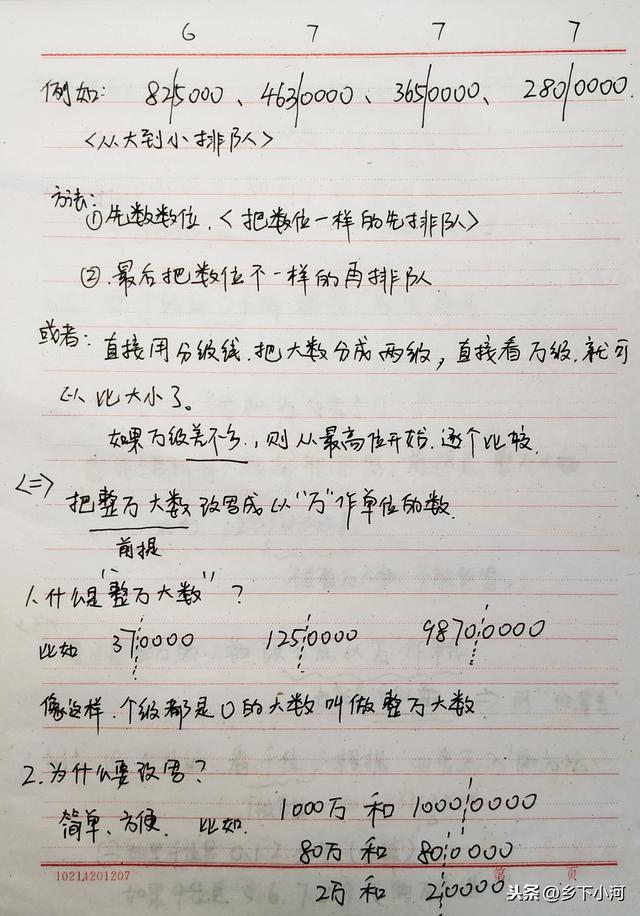 6 7 7 7
例如: 82/5000、463/0000、365/0000、280/0000.
<从大到小排队>
方法:
①先数数位.<把数位一样的先排队>
②.最后把数位不一样的再排队
或者: 直接用分级线.把大数分成两级，直接看万级.就可
以比大小了。
如果万级差不多.，则从最高位开始.逐个比较.
<二>
把整万大数改写成以"万"作单位的数.
前提
1.什么是"整万大数"?
比如 37┆0000 125┆0000 9870┆0000
像这样.个级都是0的大数叫做整万大数.
2.为什么要改写?
简单、方便. 比如. 1000万 和 1000┆0000
80万 和 80┆0000
2万 和 2┆0000
10214201207 第 页
头条@乡下小河